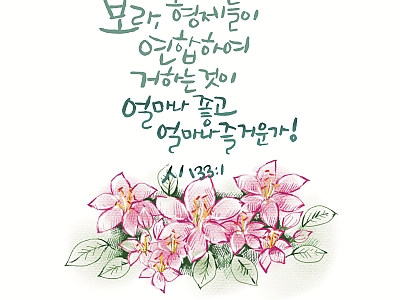 보라, 형제들이
연합하여
거하는 것이
얼마나 좋고
얼마나 즐거운가!
시 133:1